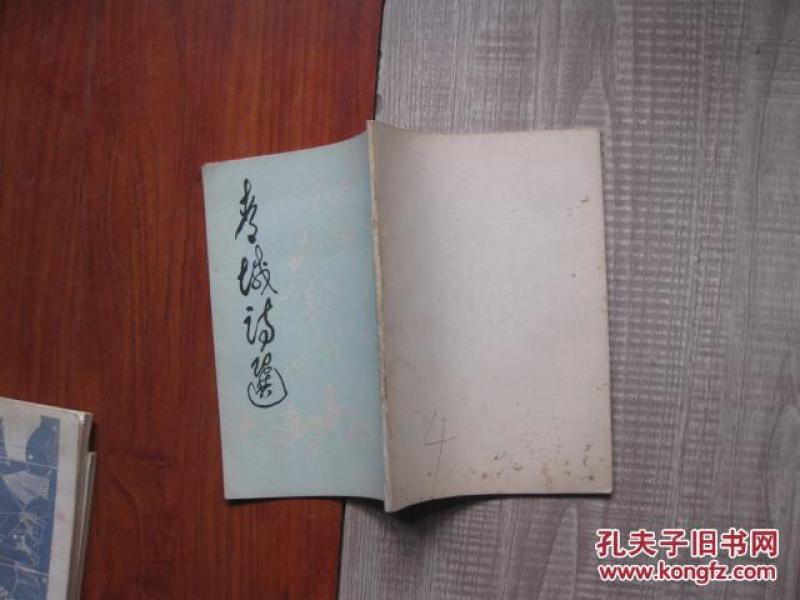 青城詩選
4
孔夫子旧书网
www.kongfz.com